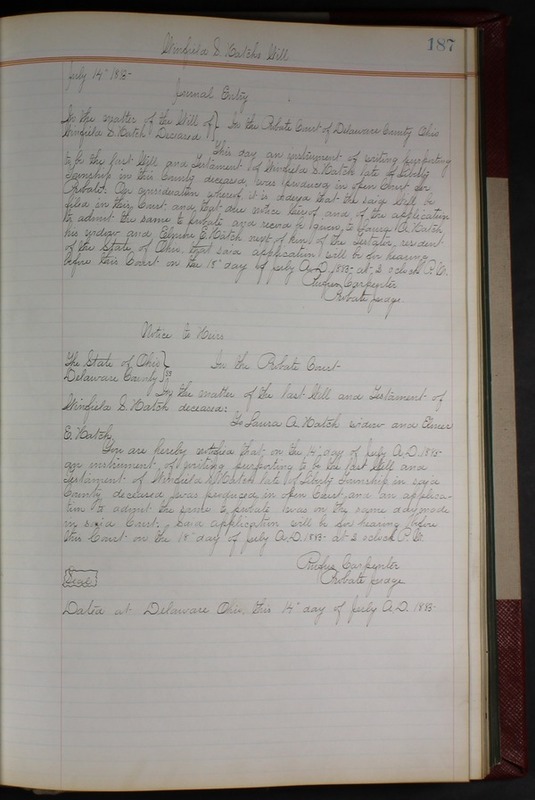 187
Winfield S. Hatchs Will
July 14" 1883-
Journal Entry
In the matter of the Will of } In the Probate Court of Delaware County Ohio
Winfield S. Hatch Deceased
This day an instrument of writing purporting
to be the last Will and Testament of Winfield S. Hatch late of Liberty
Township in this County deceased, was produced in open Court for
Probate. On consideration whereof it is ordered that the said Will be
filed in this Court and that due notice thereof and of the application
to admit the same to probate and record be given to Laura A. Hatch
his widow and Elmer E. Hatch next of kin of the testator, resident
of the State of Ohio, that said application will be for hearing
before this Court on the 18" day of July A.D. 1883- at 3 oclock P.M.
Rufus Carpenter
Probate Judge
Notice to Heirs
The State of Ohio } In the Probate Court-
Delaware County } ss
In the matter of the last Will and Testament of
Winfield S. Hatch deceased:
To Laura A. Hatch widow and Elmer
E. Hatch,
You are hereby notified that on the 14" day of July A.D. 1883-
an instrument of writing purporting to be the last Will and
Testament of Winfield S. Hatch late of Liberty Township in said
County deceased, was produced in open Court and an applica-
tion to admit the same to probate was on the same day made
in said Court; said application will be for hearing before
this Court on the 18" day of July A.D. 1883- at 3 oclock P.M.
Rufus Carpenter
Seal
Probate Judge
Dated at Delaware Ohio, this 14" day of July A.D. 1883-